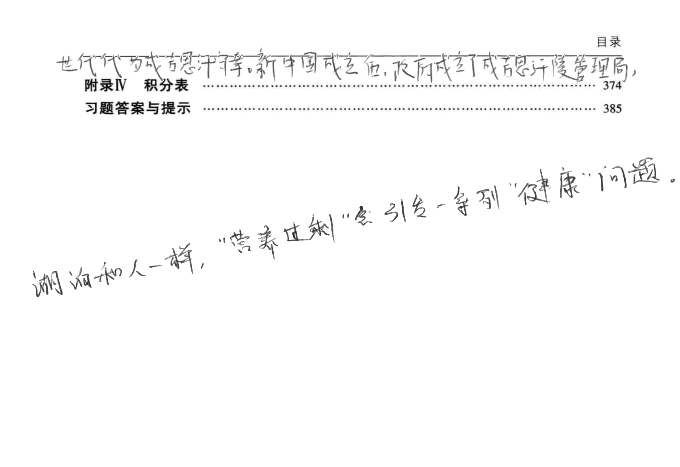 目录
世代代为成吉思汗守孝。新中国成立后,政府成立了成吉思汗陵管理局,
附录Ⅳ 积分表 374
习题答案与提示 385
湖泊和人一样,"营养过剩"会引发一系列"健康"问题。